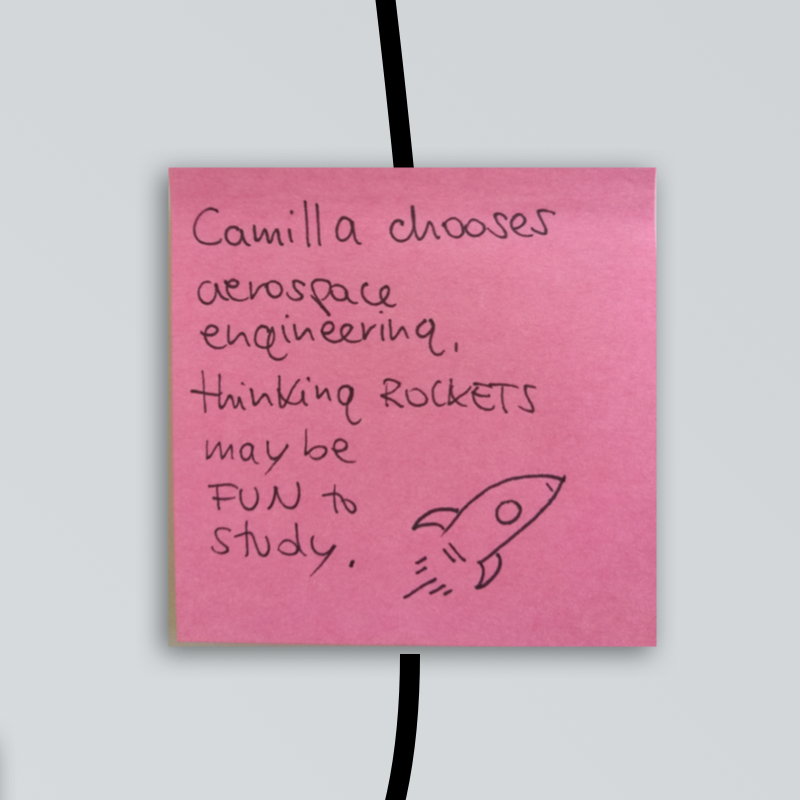 Camilla chooses
aerospace
engineering,
thinking ROCKETS
may be
FUN to
study.